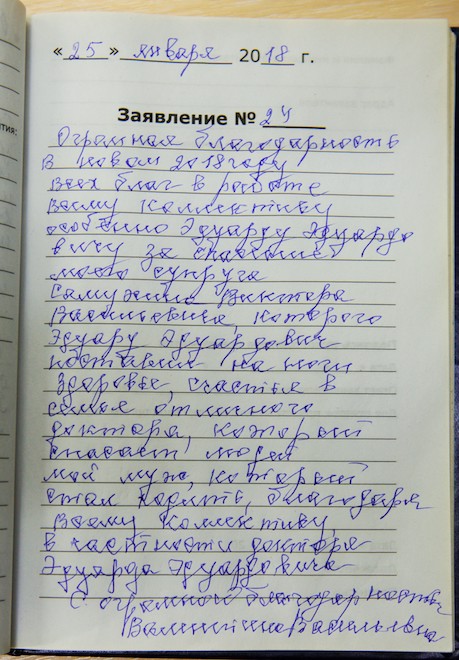 « 25 » января 2018 г.
Заявление № 24
Огромная благодарность
В новом 2018 году
всех благ в работе
всему коллективу
особенно Эдуарду Эдуардо
вичу за спасение
моего супруга
Виктора
Васильевича, которого
Эдуард Эдуардович
поставил на ноги
Здоровье, счастья в
семье отличного
доктора, который
спасает людей
мой муж, который
стал ходить, благодаря
всему коллективу,
в частности доктора
Эдуарда Эдуардовича
С огромной благодарностью
Валентина Васильевна